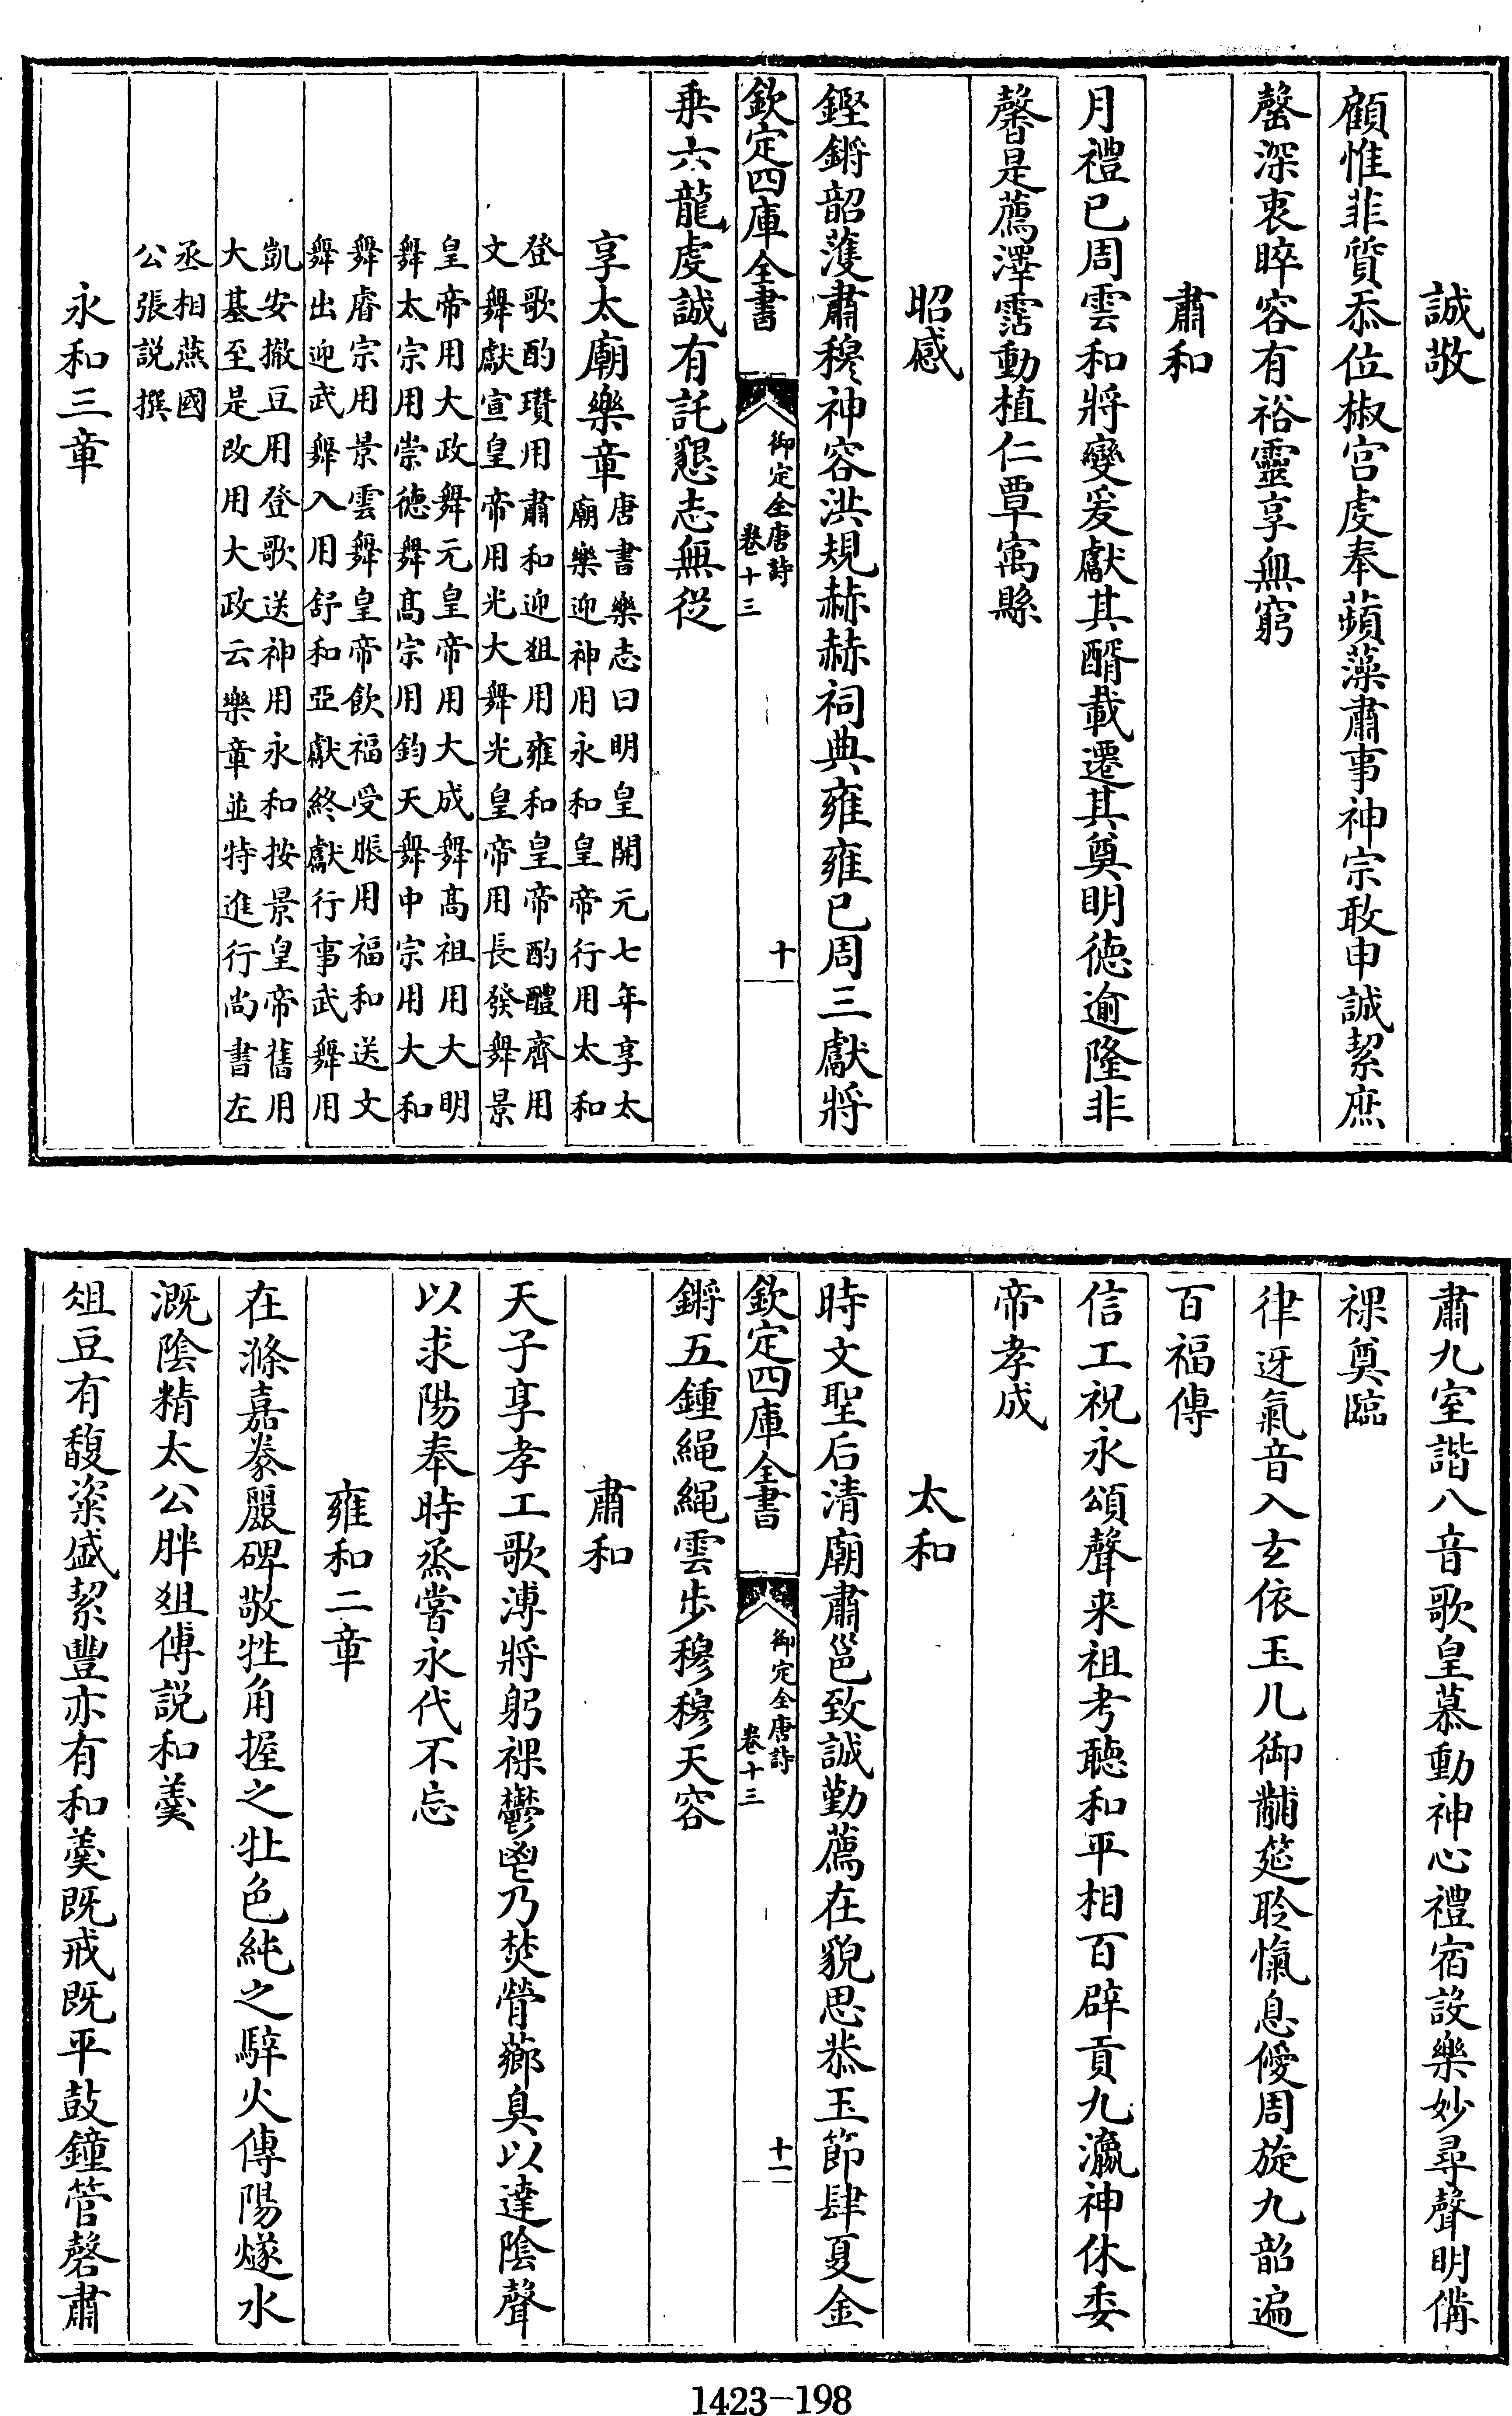 誠敬
顧惟菲質忝位椒宮虔奉蘋藻肅事神宗敢申誠絜庶
罄深衷睟容有裕靈享無窮
肅和
月禮已周雲和將變爰獻其醑載遷其奠明德逾隆非
馨是薦澤霑動植仁覃㝢縣
昭感
鏗鏘韶頀肅穆神容洪規赫赫祠典雍雍已周三獻將
欽定四庫全書
御定全唐詩
卷十三
十
乗六龍虔誠有託懇志無從
享太廟樂章
唐書樂志曰明皇開元七年享太
廟樂迎神用永和皇帝行用太和
登歌酌瓚用肅和迎俎用雍和皇帝酌醴齊用
文舞獻宣皇帝用光大舞光皇帝用長發舞景
皇帝用大政舞元皇帝用大成舞高祖用大明
舞太宗用崇德舞高宗用鈞天舞中宗用大和
舞睿宗用景雲舞皇帝飲福受脤用福和送文
舞出迎武舞入用舒和亞獻終獻行事武舞用
凱安撤豆用登歌送神用永和按景皇帝舊用
大基至是改用大政云樂章並特進行尚書左
丞相燕國
公張説撰
永和三章
肅九室諧八音歌皇慕動神心禮宿設樂妙尋聲明備
祼奠臨
律迓氣音入玄依玉几御黼筵聆愾息僾周旋九韶遍
百福傳
信工祝永頌聲来祖考聽和平相百辟貢九瀛神休委
帝孝成
太和
時文聖后清廟肅邕致誠勤薦在貌思恭玉節肆夏金
欽定四庫全書
御定全唐詩
卷十三
十一
鏘五鍾繩繩雲步穆穆天容
肅和
天子享孝工歌溥將躬祼鬱鬯乃焚膋薌臭以達陰聲
以求陽奉時烝嘗永代不忘
雍和二章
在滌嘉豢麗碑敬牲角握之牡色純之騂火傳陽燧水
溉陰精太公胖俎傅説和羹
俎豆有馥粢盛絜豐亦有和羹既戒既平鼓鐘管磬肅
1423-198